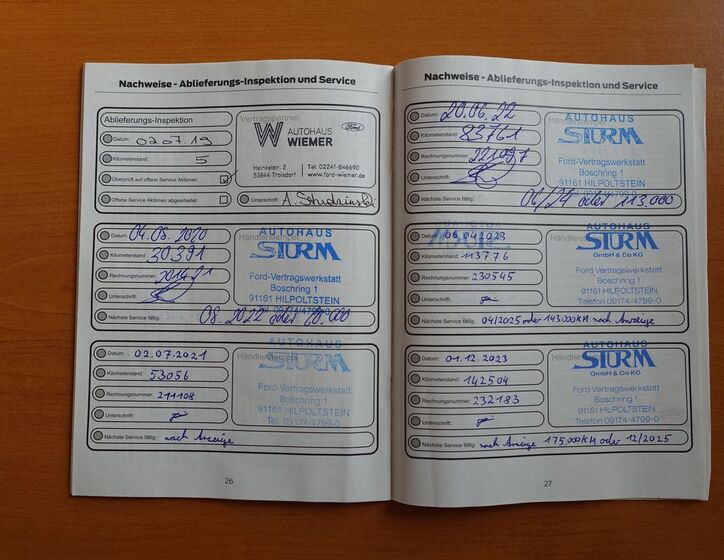 Nachweise - Ablieferungs-Inspektion und Service
Ablieferungs-Inspektion
Datum: 02.07.19
Kilometerstand: 5
Überprüft auf offene Service Aktionen:
Offene Service Aktionen abgearbeitet:
Vertragspartner
W AUTOHAUS WIEMER
Ford
Heinkelstr. 2
53844 Troisdorf
Tel. 02241-846690
www.ford-wiemer.de
Unterschrift:
Datum: 04.08.2020
Kilometerstand: 30391
Rechnungsnummer:
Unterschrift:
Nächste Service fällig: 08.2022 oder
Händlerstempel
AUTOHAUS
STURM
Ford-Vertragswerkstatt
Boschring 1
91161 HILPOLTSTEIN
Tel. 09174/4799-0
Datum: 02.07.2021
Kilometerstand: 53056
Rechnungsnummer: 211108
Unterschrift:
Nächste Service fällig: nach Anzeige
Händlerstempel
AUTOHAUS
STURM
Ford-Vertragswerkstatt
Boschring 1
91161 HILPOLTSTEIN
Tel. 09174/4799-0
26
Nachweise - Ablieferungs-Inspektion und Service
Datum: 20.06.22
Kilometerstand: 83761
Rechnungsnummer:
Unterschrift:
Nächste Service fällig: 06/24 oder 113.000
AUTOHAUS
STURM
Ford-Vertragswerkstatt
Boschring 1
91161 HILPOLTSTEIN
Datum: 06.04.2023
Kilometerstand: 113776
Rechnungsnummer: 230545
Unterschrift:
Nächste Service fällig: 04/2025 oder 143.000KM nach Anzeige
Händlerstempel
AUTOHAUS
STURM
GmbH & Co KG
Ford-Vertragswerkstatt
Boschring 1
91161 HILPOLTSTEIN
Telefon 09174/4799-0
Datum: 01.12.2023
Kilometerstand: 142504
Rechnungsnummer: 232183
Unterschrift:
Nächste Service fällig: nach Anzeige 175.000KM oder 12/2025
Händlerstempel
AUTOHAUS
STURM
GmbH & Co KG
Ford-Vertragswerkstatt
Boschring 1
91161 HILPOLTSTEIN
Telefon 09174/4799-0
27